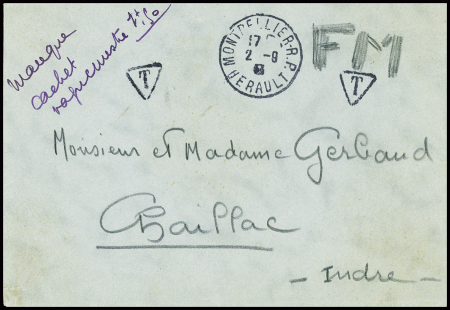 manque
cachet
MONTPELLIER-R.P.
17
2-9
HERAULT
FM
T
T
Monsieur et Madame Gerbaud
Chaillac
- Indre -